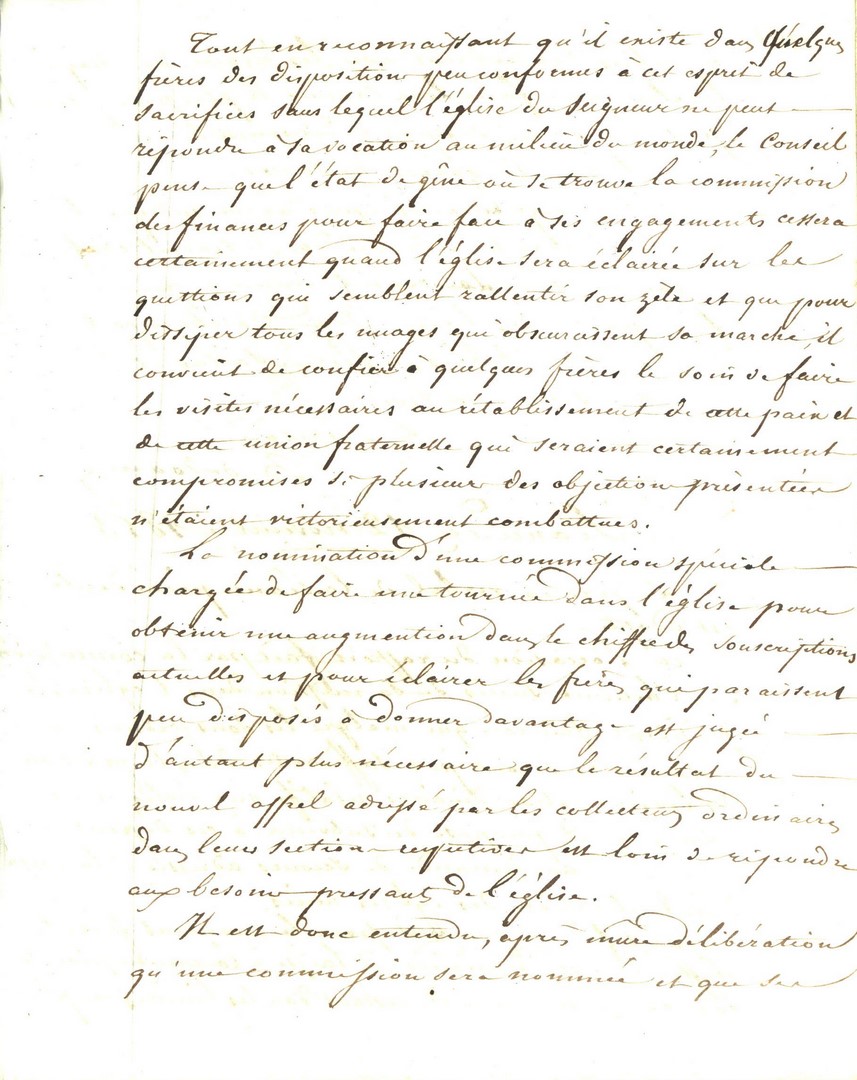 Tout en reconnaissant qu'il existe dans quelques
frères des dispositions peu conformes à cet esprit de
sacrifices sans lequel l'église du Seigneur ne peut
répondre à sa vocation au milieu du monde, le Conseil
pense que l'état de gêne où se trouve la commission
des finances pour faire face à ses engagements cessera
certainement quand l'église sera éclairée sur les
questtions qui semblent rallentir son zèle et que pour
dissiper tous les nuages qui obscurcissent sa marche, il
convient de confier à quelques frères le soin de faire
les visites nécessaires au rétablissement de cette paix et
de cette union fraternelle qui seraient certainement
compromises si plusieurs des objections présentées
n'étaient victorieusement combattues.
La nomination d'une commission spéciale
chargée de faire une tournée dans l'église pour
obtenir une augmention dans le chiffre des souscriptions
actuelles et pour éclairer les frères qui paraissent
peu disposés à donner davantage est jugée
d'autant plus nécessaire que le résultat du
nouvel appel adressé par les collecteurs ordinaires
dans leurs sections respectives est loin de répondre
aux besoins pressants de l'église.
Il est donc entendu, après mûre délibération
qu'une commission sera nommée et que ses